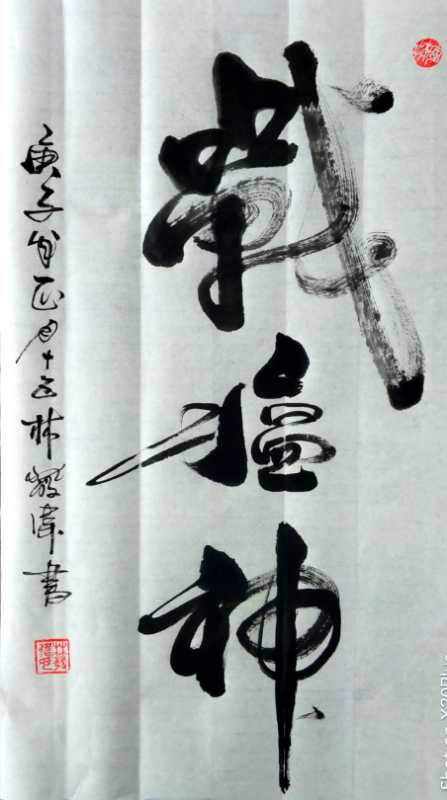 戰瘟神
庚子年正月十五林偉書
Shot on X20Plus